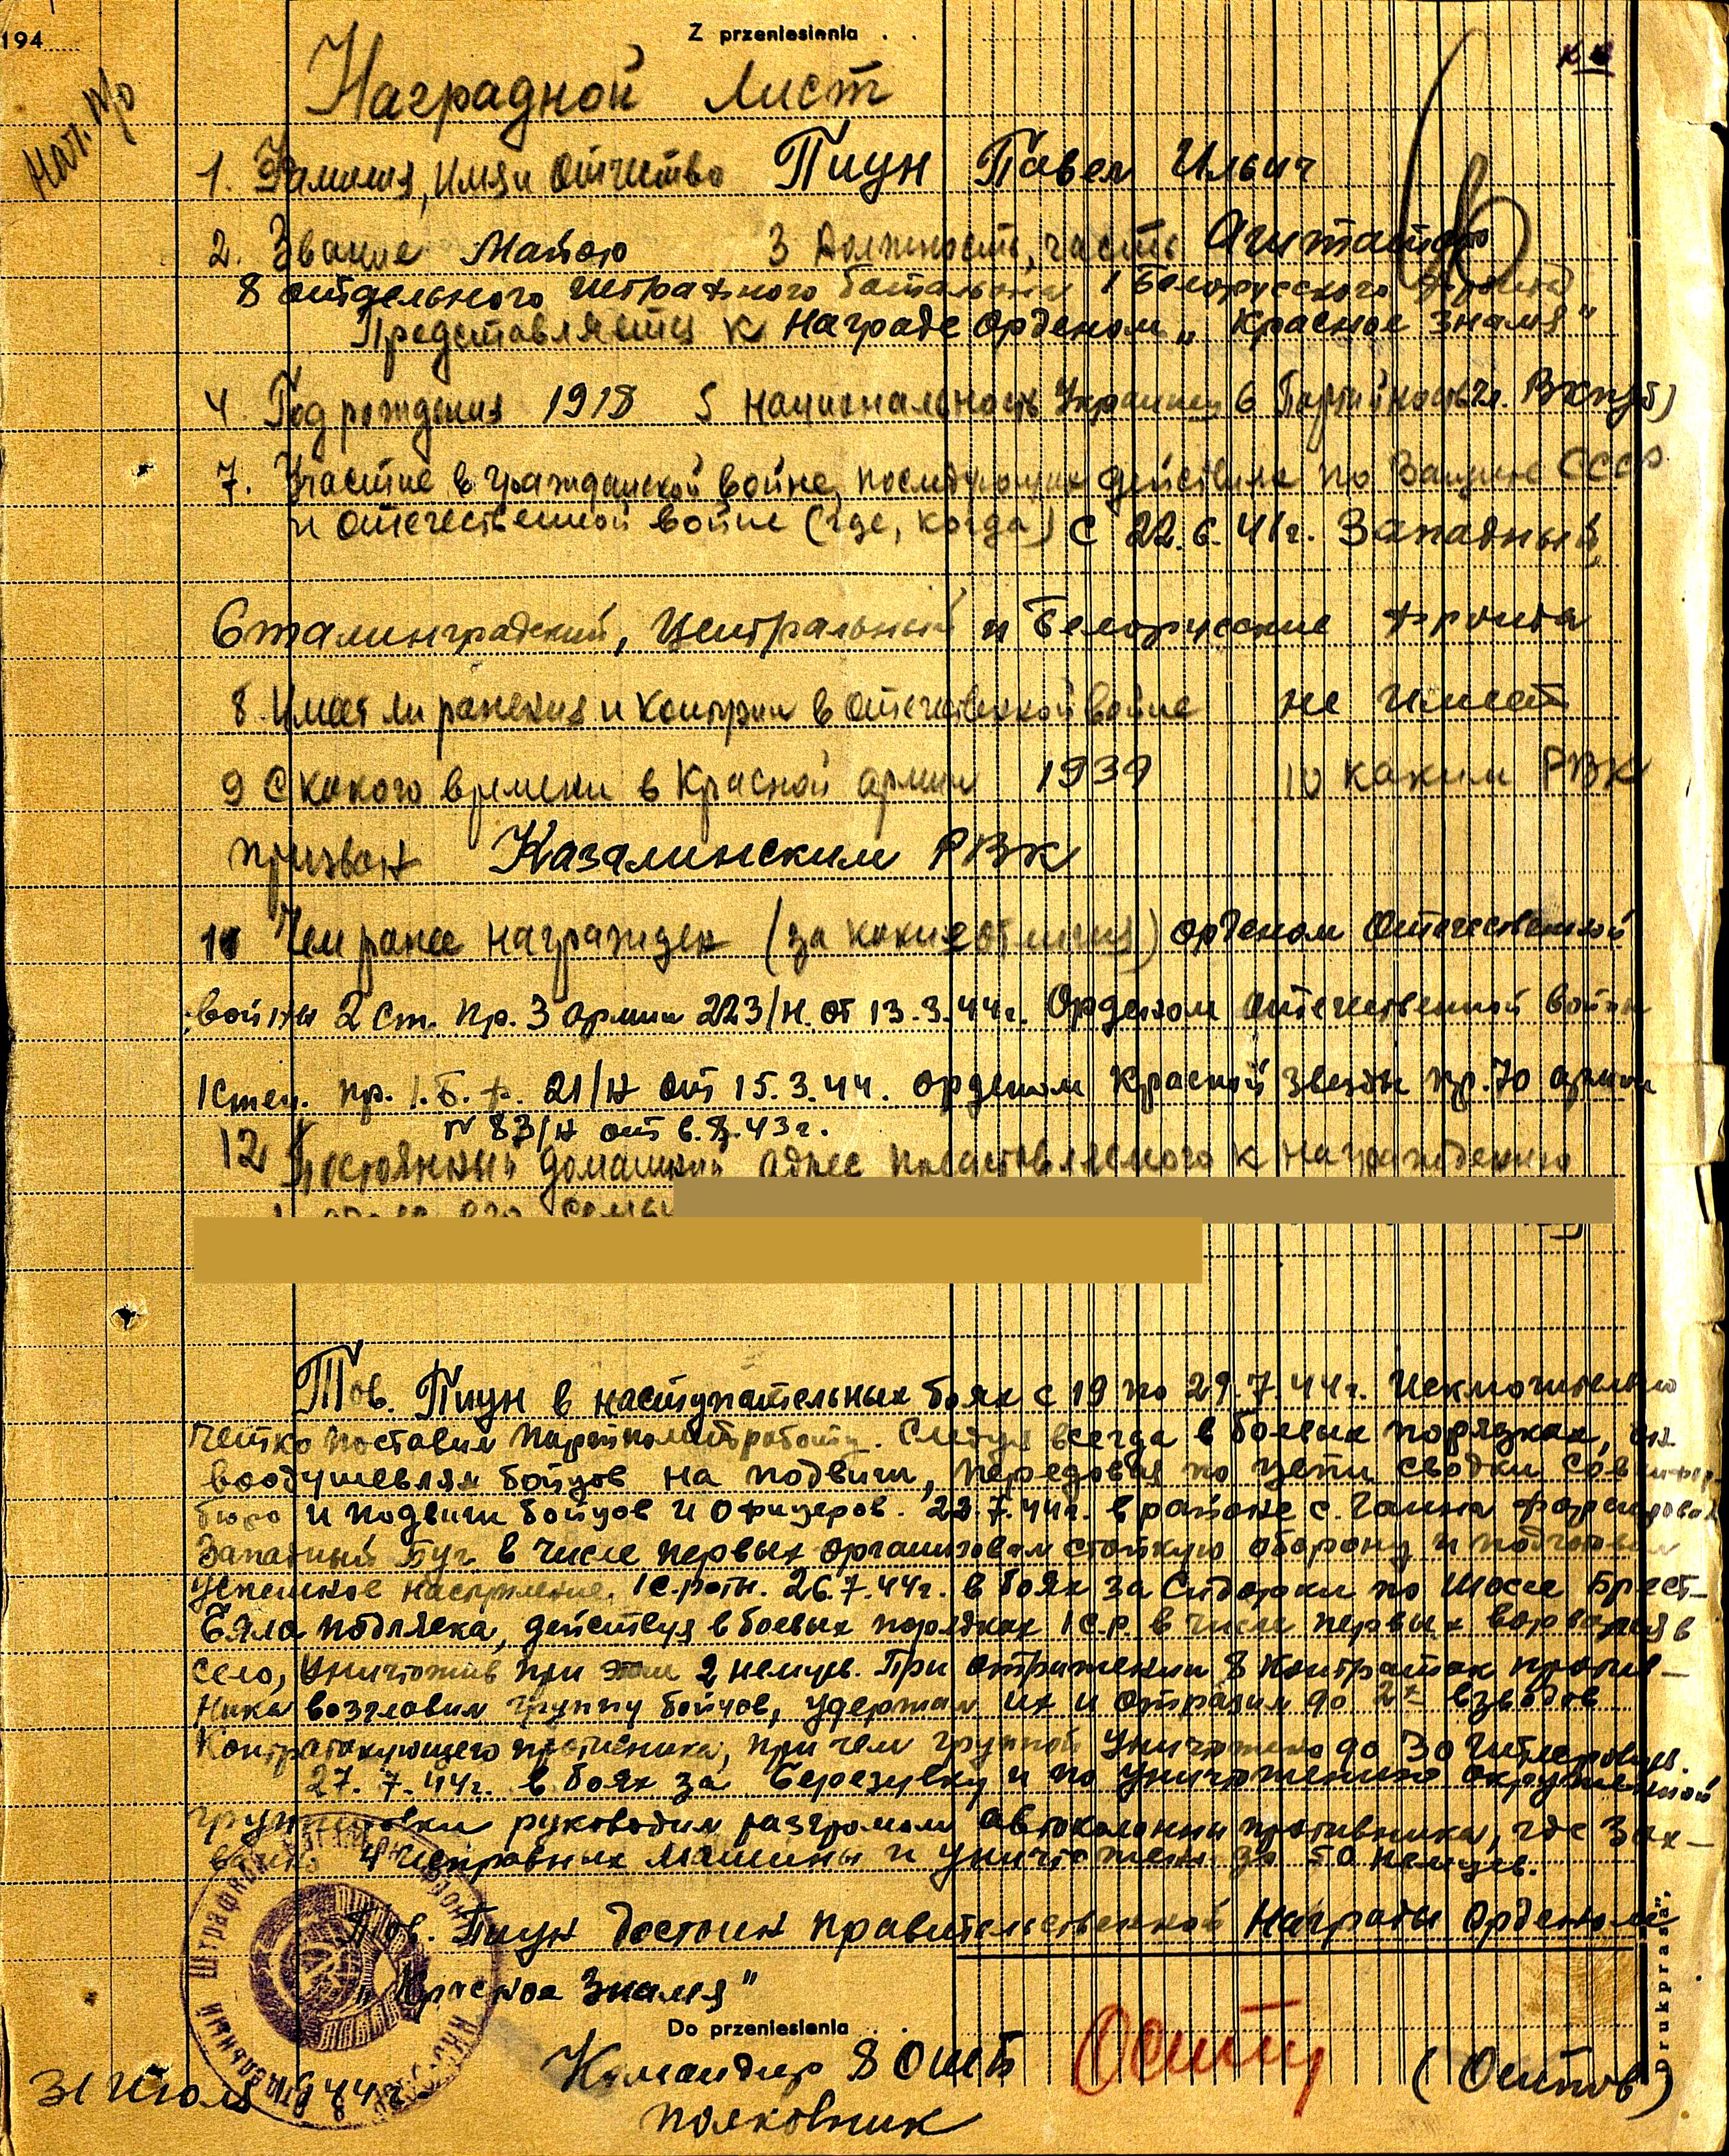 194
Z przeniesienia
Наградной Лист
1. Фамилия, имя и отчество Пиун Павел Ильич
2. Звание Майор 3 Должность, часть Агитатор
8 отдельного штрафного батальона 1 Белорусского фронта
Представляется к награде орденом „Красное Знамя"
4 Год рождения 1918 5 национальность Украинец 6 Партийность чл. ВКП(б)
7. Участие в гражданской войне, последующих действиях по защите СССР
и отечественной войне (где, когда) с 22.6.41г. Западный,
Сталинградский, Центральный и Белорусские фронта
8 Имеет ли ранения и контузии в отечественной войне не имеет
9 С какого времени в Красной армии 1939 10 каким РВК
призван Казалинским РВК
11 Чем ранее награжден (за какие отличия) орденом Отечественной
войны 2 ст. пр. 3 армии 223/н. от 13.3.44г. Орденом Отечественной войны
1 степ. пр. 1.Б.ф. 21/н от 15.3.44. орденом Красной звезды пр. 70 армии
N 83/н от 6.8.43г.
12 Постоянный домашний адрес представляемого к награждению
адрес его семьи
Тов. Пиун в наступательных боях с 19 по 29.7.44г. Исключительно
четко поставил партполитработу. Следуя всегда в боевых порядках, он
воодушевлял бойцов на подвиги, передавая по цепи сводки Совинформ
бюро и подвиги бойцов и офицеров. 22.7.44г. в районе с. Ганна форсировал
Западный Буг в числе первых организовал стойкую оборону и подготовил
успешное наступление 1 с.роты. 26.7.44г. в боях за Сидорки по шоссе Брест-
Бяла подляска, действуя в боевых порядках 1 с.р. в числе первых ворвался в
село, уничтожив при этом 2 немцев. При отражении 8 контратак против-
ника возглавил группу бойцов, удержал их и отразил до 2х взводов
контратакующего противника, при чем группой уничтожено до 30 гитлеровцев.
27.7.44г. в боях за Березувку и по уничтожению окруженной
группировки руководил разгромом автоколонны противника, где зах-
вачено 4 исправных машины и уничтожены до 50 немцев.
Тов. Пиун достоин правительственной Награды Орденом
„Красное Знамя"
Do przeniesienia
Командир 8 ОШБ Осипов (Осипов)
полковник
31 Июля 1944г.
Drukprasa"